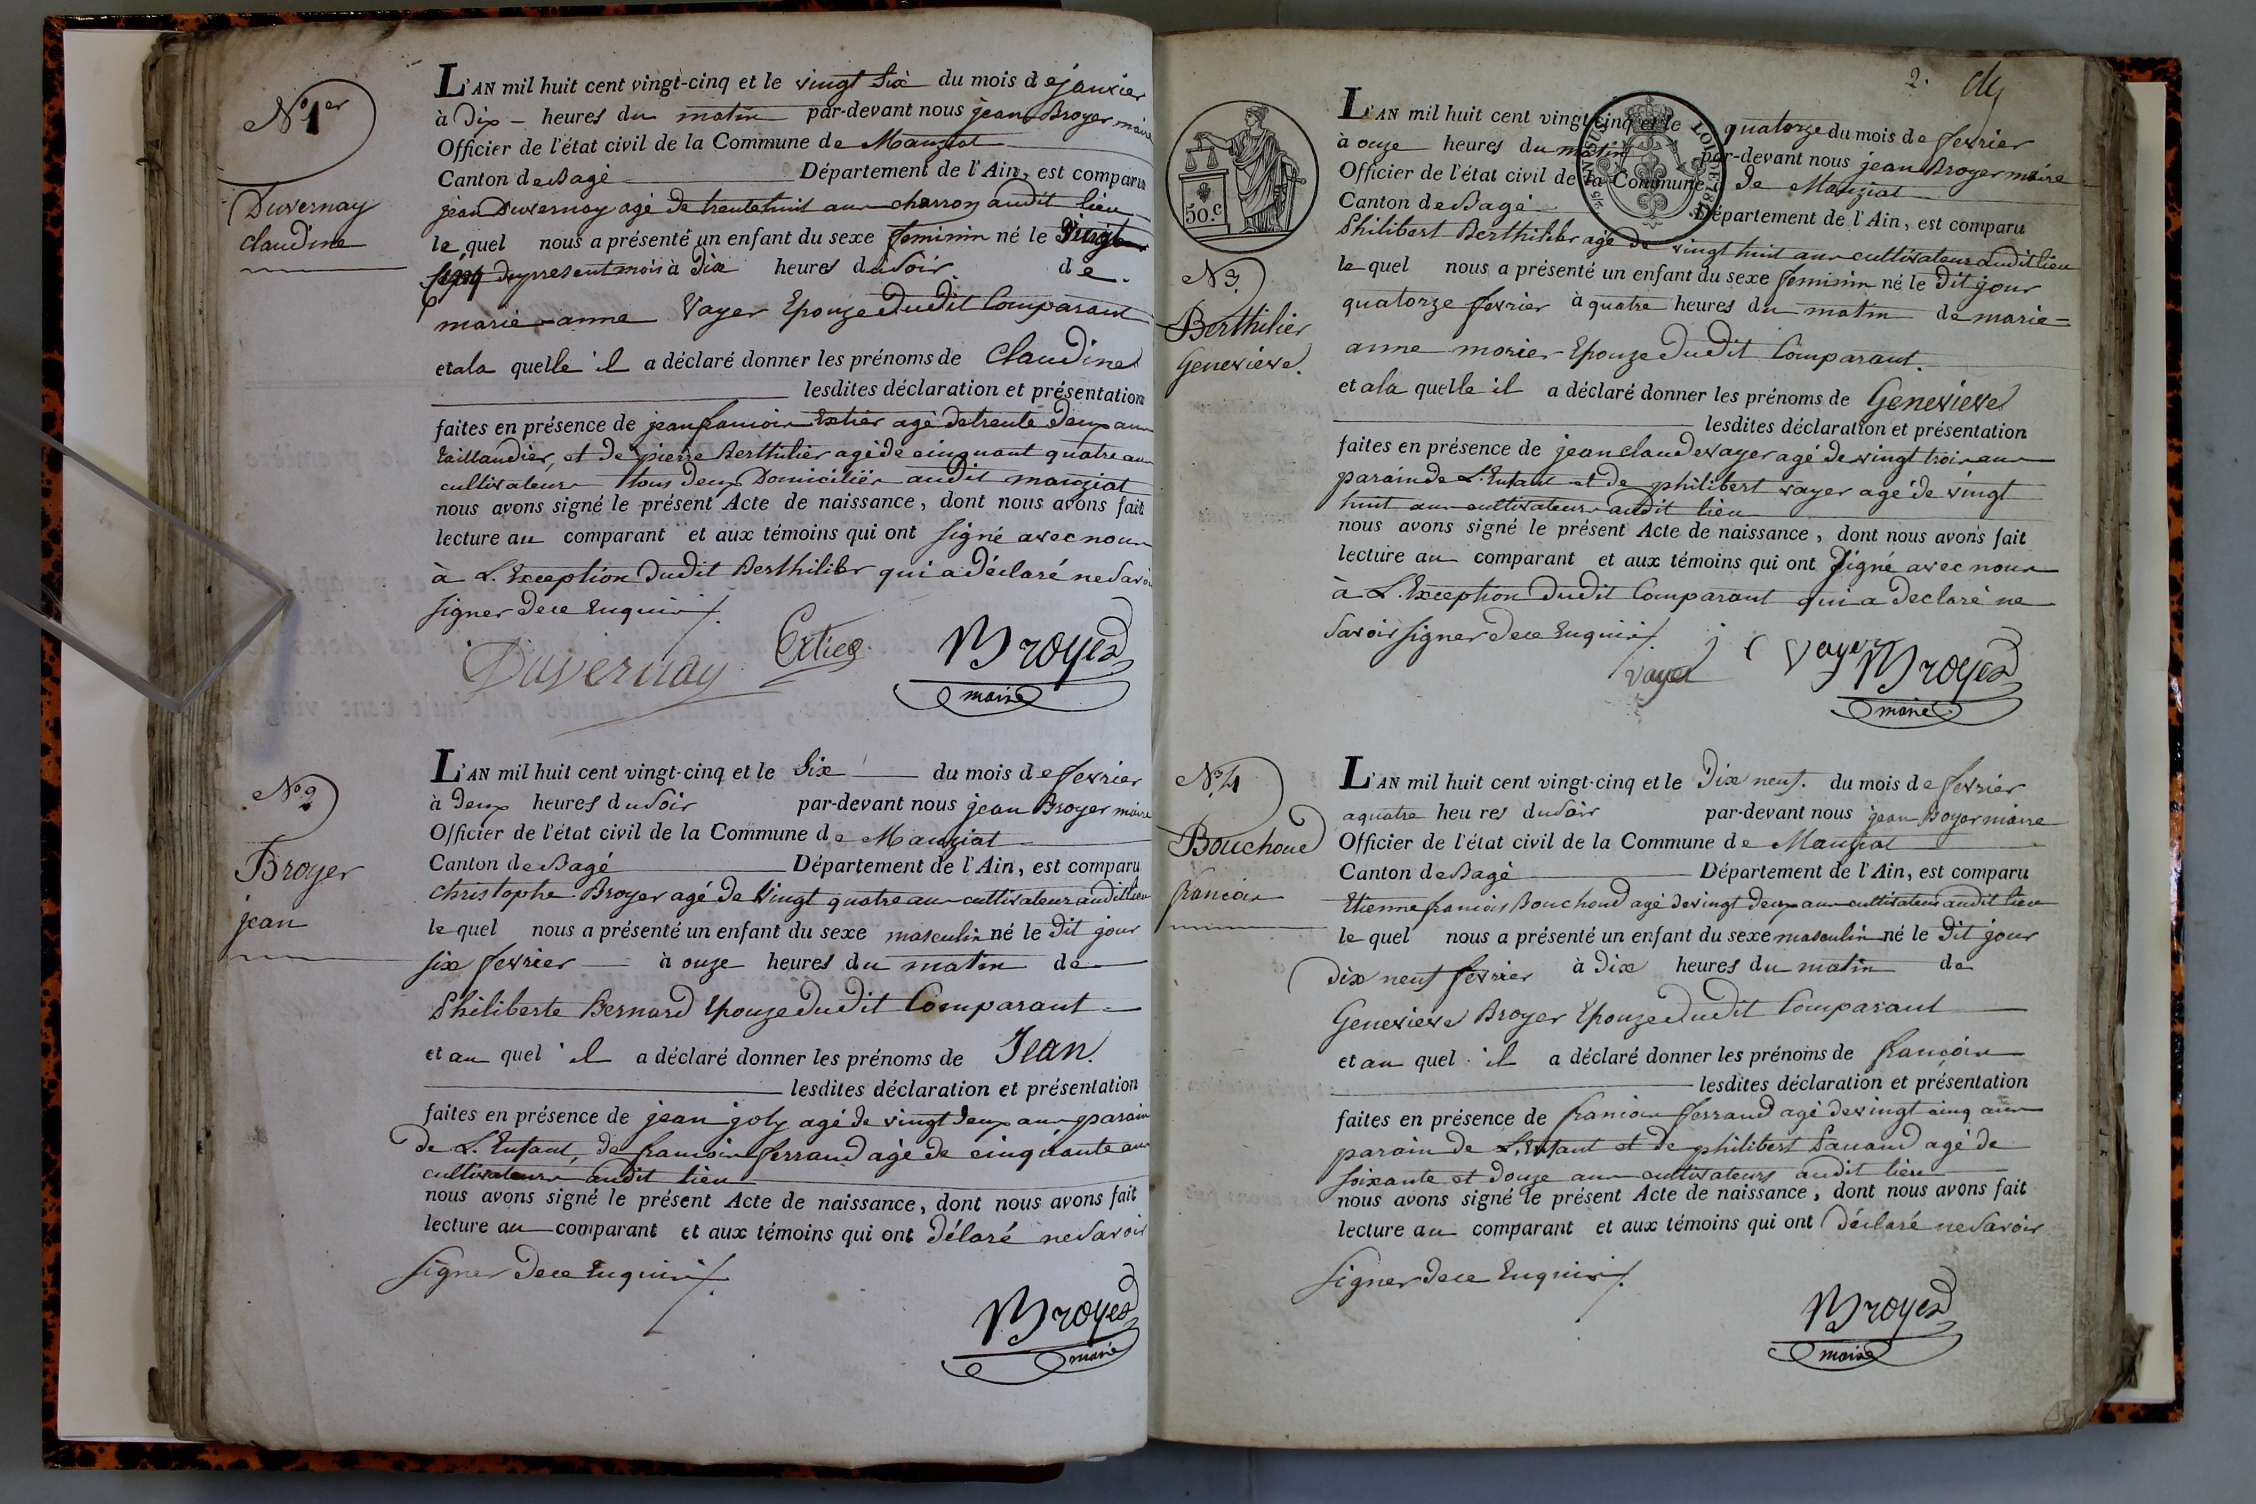 N° 1er
Duvernay
Claudine
L'AN mil huit cent vingt-cinq et le vingt Six du mois de janvier
à Dix heures du matin par-devant nous jean Broyer maire
Officier de l'état civil de la Commune de Manziat
Canton de Bagé Département de l'Ain, est comparu
jean Duvernay agé de trente huit ans charron audit lieu
le quel nous a présenté un enfant du sexe feminin né le Vingt
cinq du present mois à Dix heures du Soir de
marie-anne Vayer Epouze Dudit Comparant
et a la quelle il a déclaré donner les prénoms de Claudine
lesdites déclaration et présentation
faites en présence de jean francois Extier agé de trente Deux ans
taillandier, et de pierre Berthilier agé de cinquant quatre ans
cultivateurs tous deux Domiciliés audit manziat
nous avons signé le présent Acte de naissance, dont nous avons fait
lecture au comparant et aux témoins qui ont signé avec nous
à L'Exception Dudit Berthilier qui a déclaré ne Savoir
signer De ce Enquis
Duvernay Extier Broyer
maire
N° 2
Broyer
jean
L'AN mil huit cent vingt-cinq et le Six du mois de fevrier
à Deux heures du Soir par-devant nous jean Broyer maire
Officier de l'état civil de la Commune de Manziat
Canton de Bagé Département de l'Ain, est comparu
Christophe Broyer agé de Vingt quatre ans cultivateur audit lieu
le quel nous a présenté un enfant du sexe masculin né le Dit jour
six fevrier à onze heures du matin de
Philiberte Bernard Epouze Dudit Comparant
et au quel il a déclaré donner les prénoms de Jean.
lesdites déclaration et présentation
faites en présence de jean joly agé de vingt Deux ans parain
de L'Enfant, de francois ferrand agé de cinquante ans
cultivateurs audit lieu
nous avons signé le présent Acte de naissance, dont nous avons fait
lecture au comparant et aux témoins qui ont délaré ne Savoir
signer De ce Enquis
Broyer
maire
2.
50.c
LOI DE
N° 3
Berthilier
Genevieve.
L'AN mil huit cent vingt-cinq et le quatorze du mois de fevrier
à onze heures du matin par-devant nous jean Broyer maire
Officier de l'état civil de la Commune de Manziat
Canton de Bagé Département de l'Ain, est comparu
Philibert Berthilier agé de vingt huit ans cultivateur audit lieu
le quel nous a présenté un enfant du sexe feminin né le Dit jour
quatorze fevrier à quatre heures du matin de marie=
anne morier Epouze Dudit Comparant.
et a la quelle il a déclaré donner les prénoms de Genevieve
lesdites déclaration et présentation
faites en présence de jean claude vayer agé de vingt trois ans
parain de L'Enfant et de philibert vayer agé de vingt
huit ans cultivateurs audit lieu
nous avons signé le présent Acte de naissance, dont nous avons fait
lecture au comparant et aux témoins qui ont Signé avec nous
à L'Exception Dudit Comparant qui a declaré ne
Savoir signer De ce Enquis
vayer j c Vayer Broyer
maire
N° 4
Bouchoud
francois
L'AN mil huit cent vingt-cinq et le Dix neuf. du mois de fevrier
a quatre heures du Soir par-devant nous jean Broyer maire
Officier de l'état civil de la Commune de Manziat
Canton de Bagé Département de l'Ain, est comparu
Etienne francois Bouchoud agé de vingt Deux ans cultivateur audit lieu
le quel nous a présenté un enfant du sexe masculin né le Dit jour
Dix neuf fevrier à Dix heures du matin de
Genevieve Broyer Epouze Dudit Comparant
et au quel il a déclaré donner les prénoms de francois
lesdites déclaration et présentation
faites en présence de francois ferrand agé de vingt cinq ans
parain de L'Enfant et de philibert agé de
soixante et Douze ans cultivateurs audit lieu
nous avons signé le présent Acte de naissance, dont nous avons fait
lecture au comparant et aux témoins qui ont Déclaré ne Savoir
signer De ce Enquis
Broyer
maire